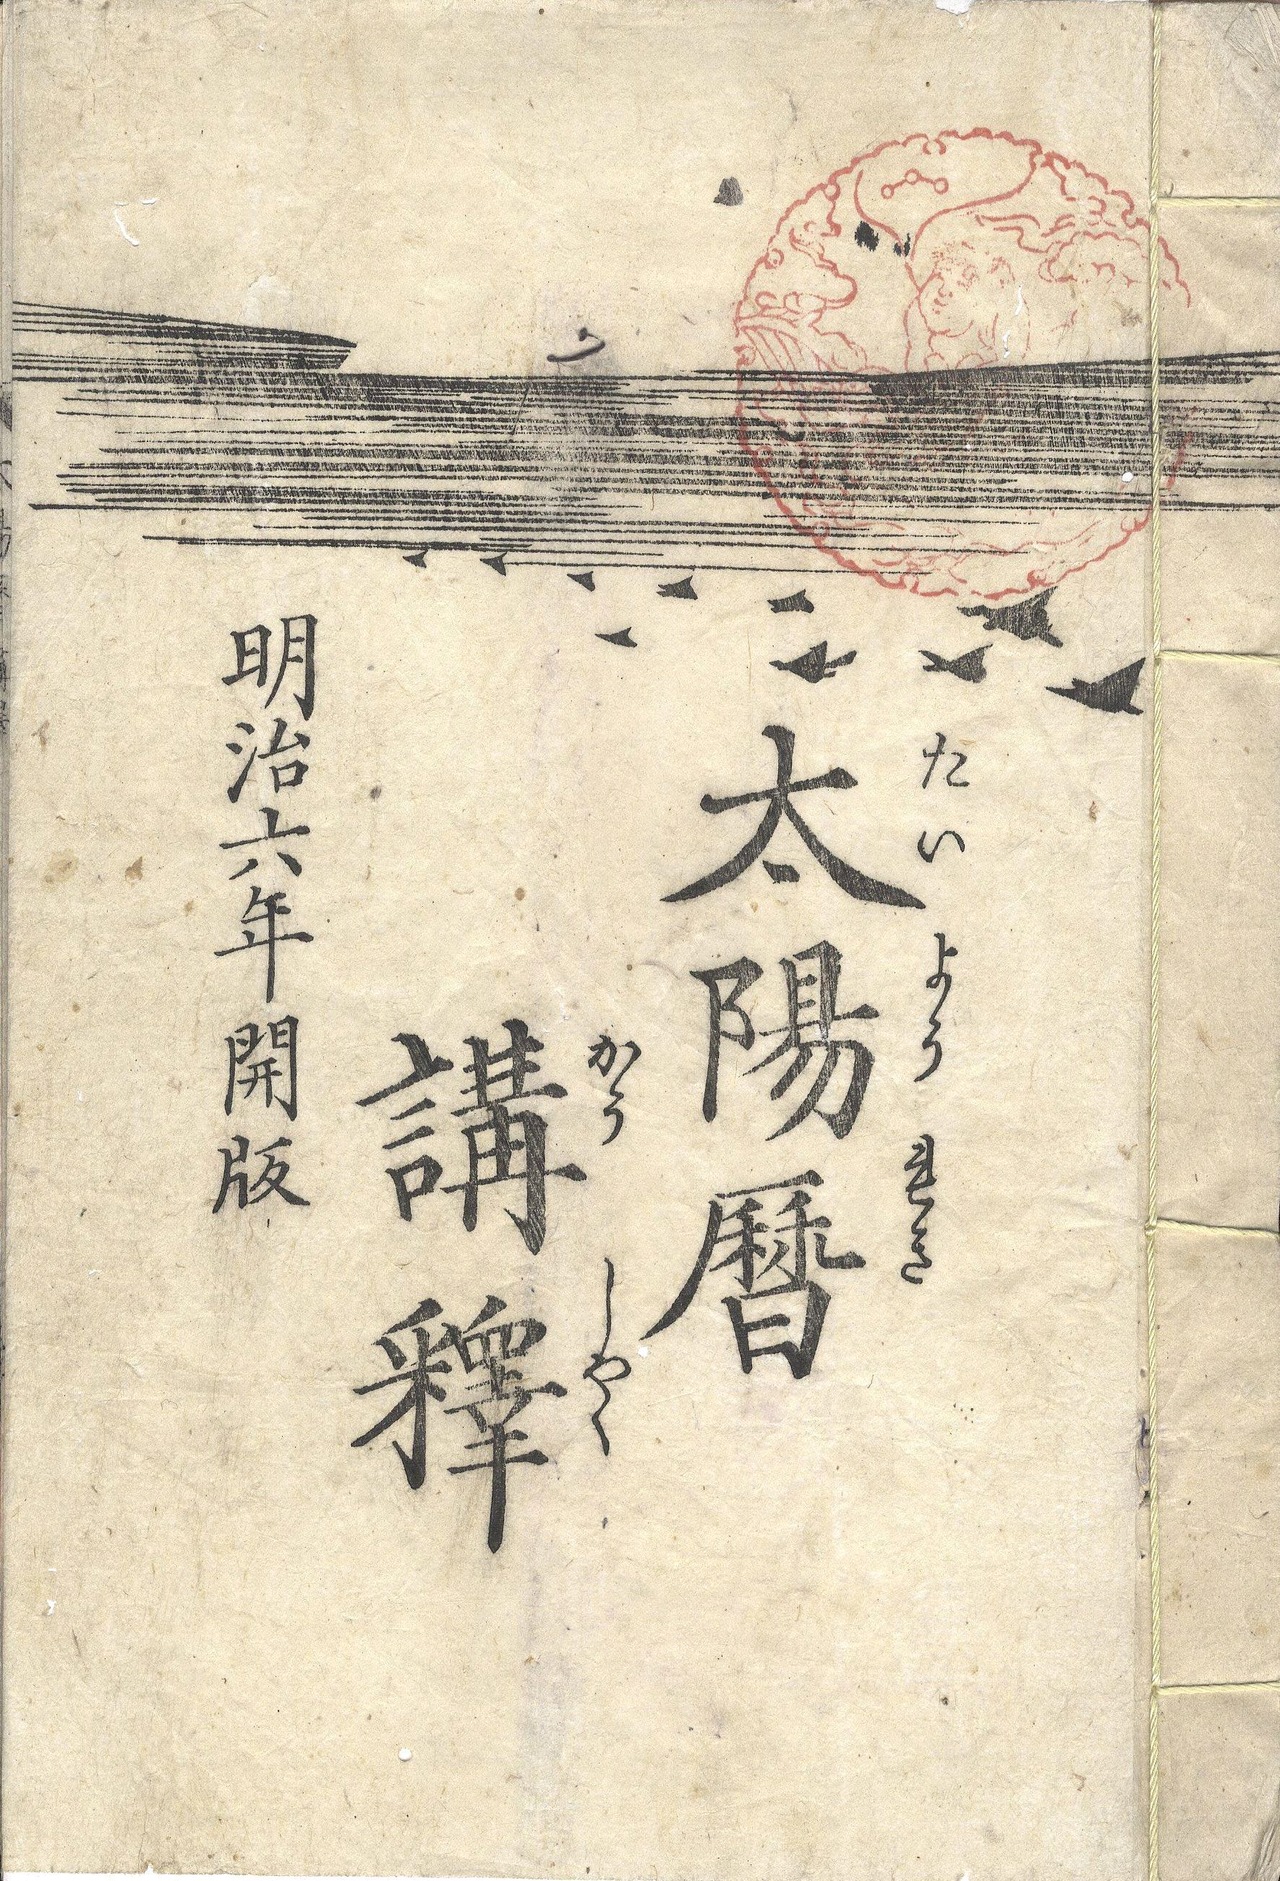 太陽暦
たいようれき
講釋
かうしやく
明治六年開版